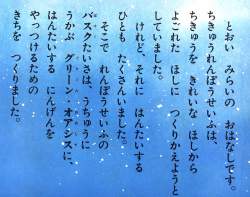 とおい みらいの おはなしです。
ちきゅうれんぽうせいふは、
ちきゅうを きれいな ほしから
よごれた ほしに つくりかえようと
していました。
けれど、それに はんたいする
ひとも たくさんいました。
そこで れんぽうせいふの
バスクたいさは、うちゅうに
うかぶ グリーン・オアシスに、
はんたいする にんげんを
やっつけるための
きちを つくりました。